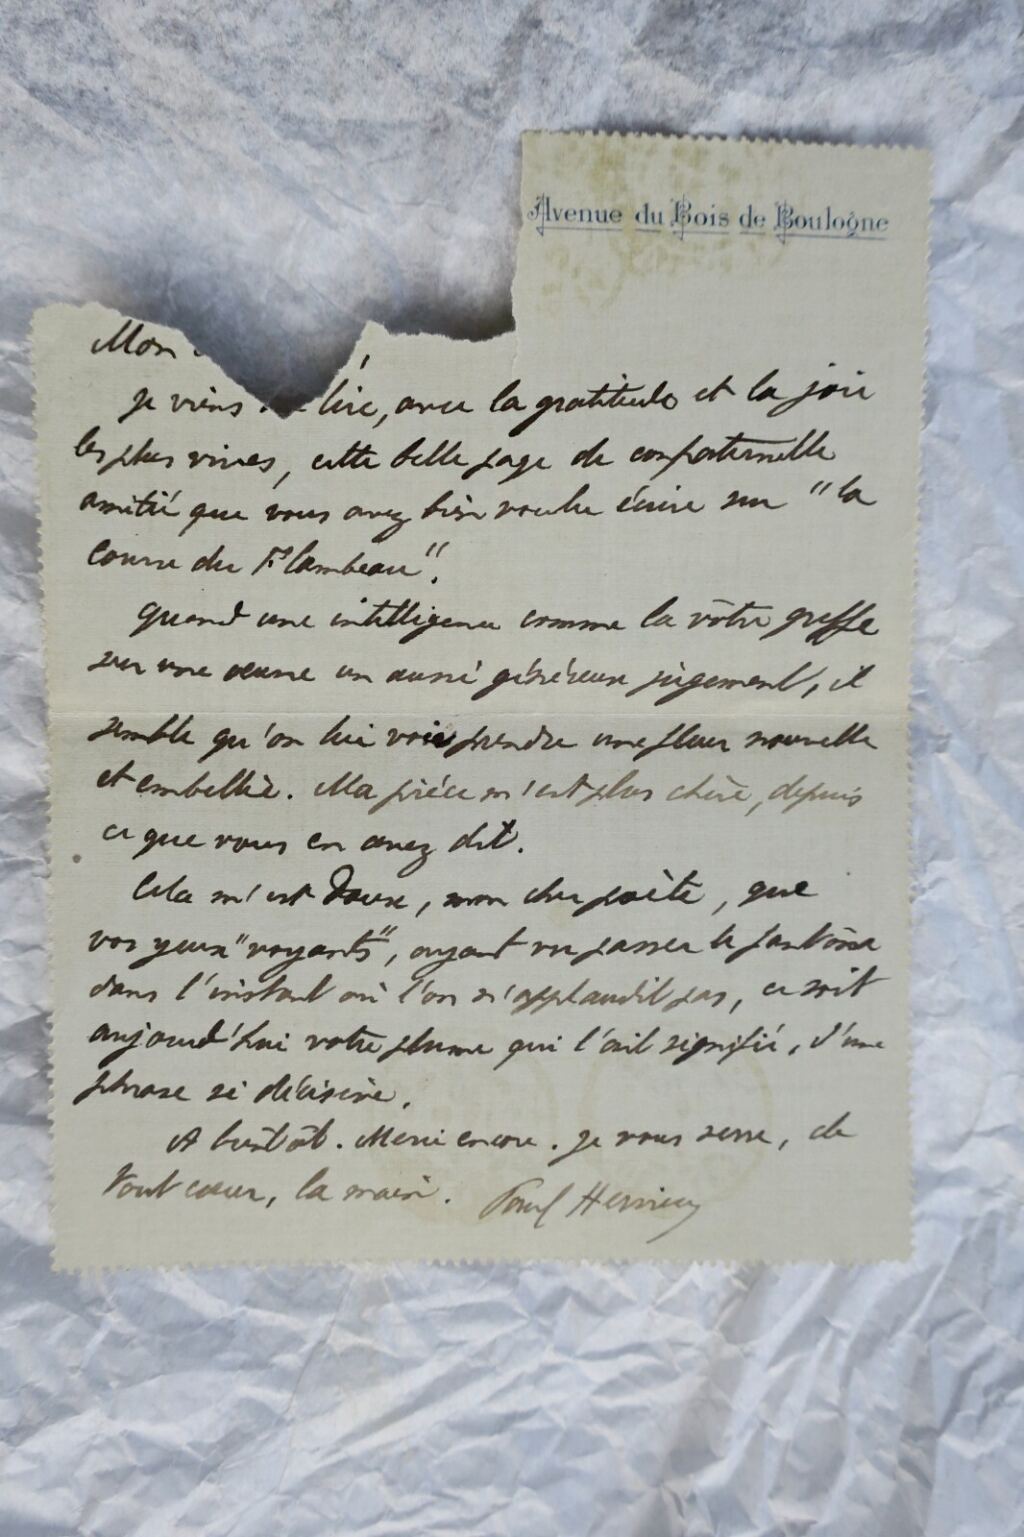 Avenue du Bois de Boulogne
Mon
je viens lire, avec la gratitude et la joie
les plus vives, cette belle page de confraternelle
amitié que vous avez bien voulu écrire sur "la
Course du Flambeau".
Quand une intelligence comme la vôtre greffe
sur une œuvre un aussi généreux jugement, il
semble qu'on lui voie prendre une fleur nouvelle
et embellie. Ma pièce m'est plus chère, depuis
ce que vous en avez dit.
Cela m'est doux, mon cher poète, que
vos yeux "voyants", ayant vu passer le fantôme
dans l'instant où l'on n'applaudit pas, ce soit
aujourd'hui votre plume qui l'ait signifié, d'une
phrase si décisive.
A bientôt. Merci encore. Je vous serre, de
tout cœur, la main. Paul Hervieu